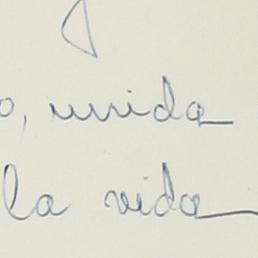 o, unida
la vida